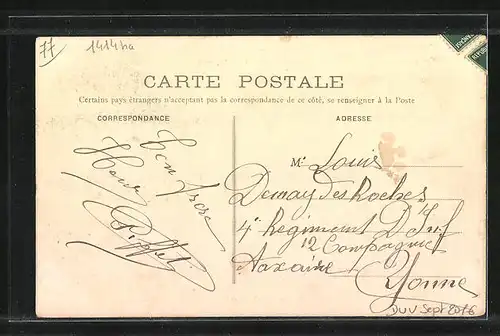 77
1414ha
CARTE POSTALE
Certains pays étrangers n'acceptant pas la correspondance de ce côté, se renseigner à la Poste
CORRESPONDANCE
Ton frère
Piffet
ADRESSE
Mr Louis
Demay des Roches
4e Regiment D'Inf
12 Compagnie
Aaxaire
Yonne
DUV Sept 2016